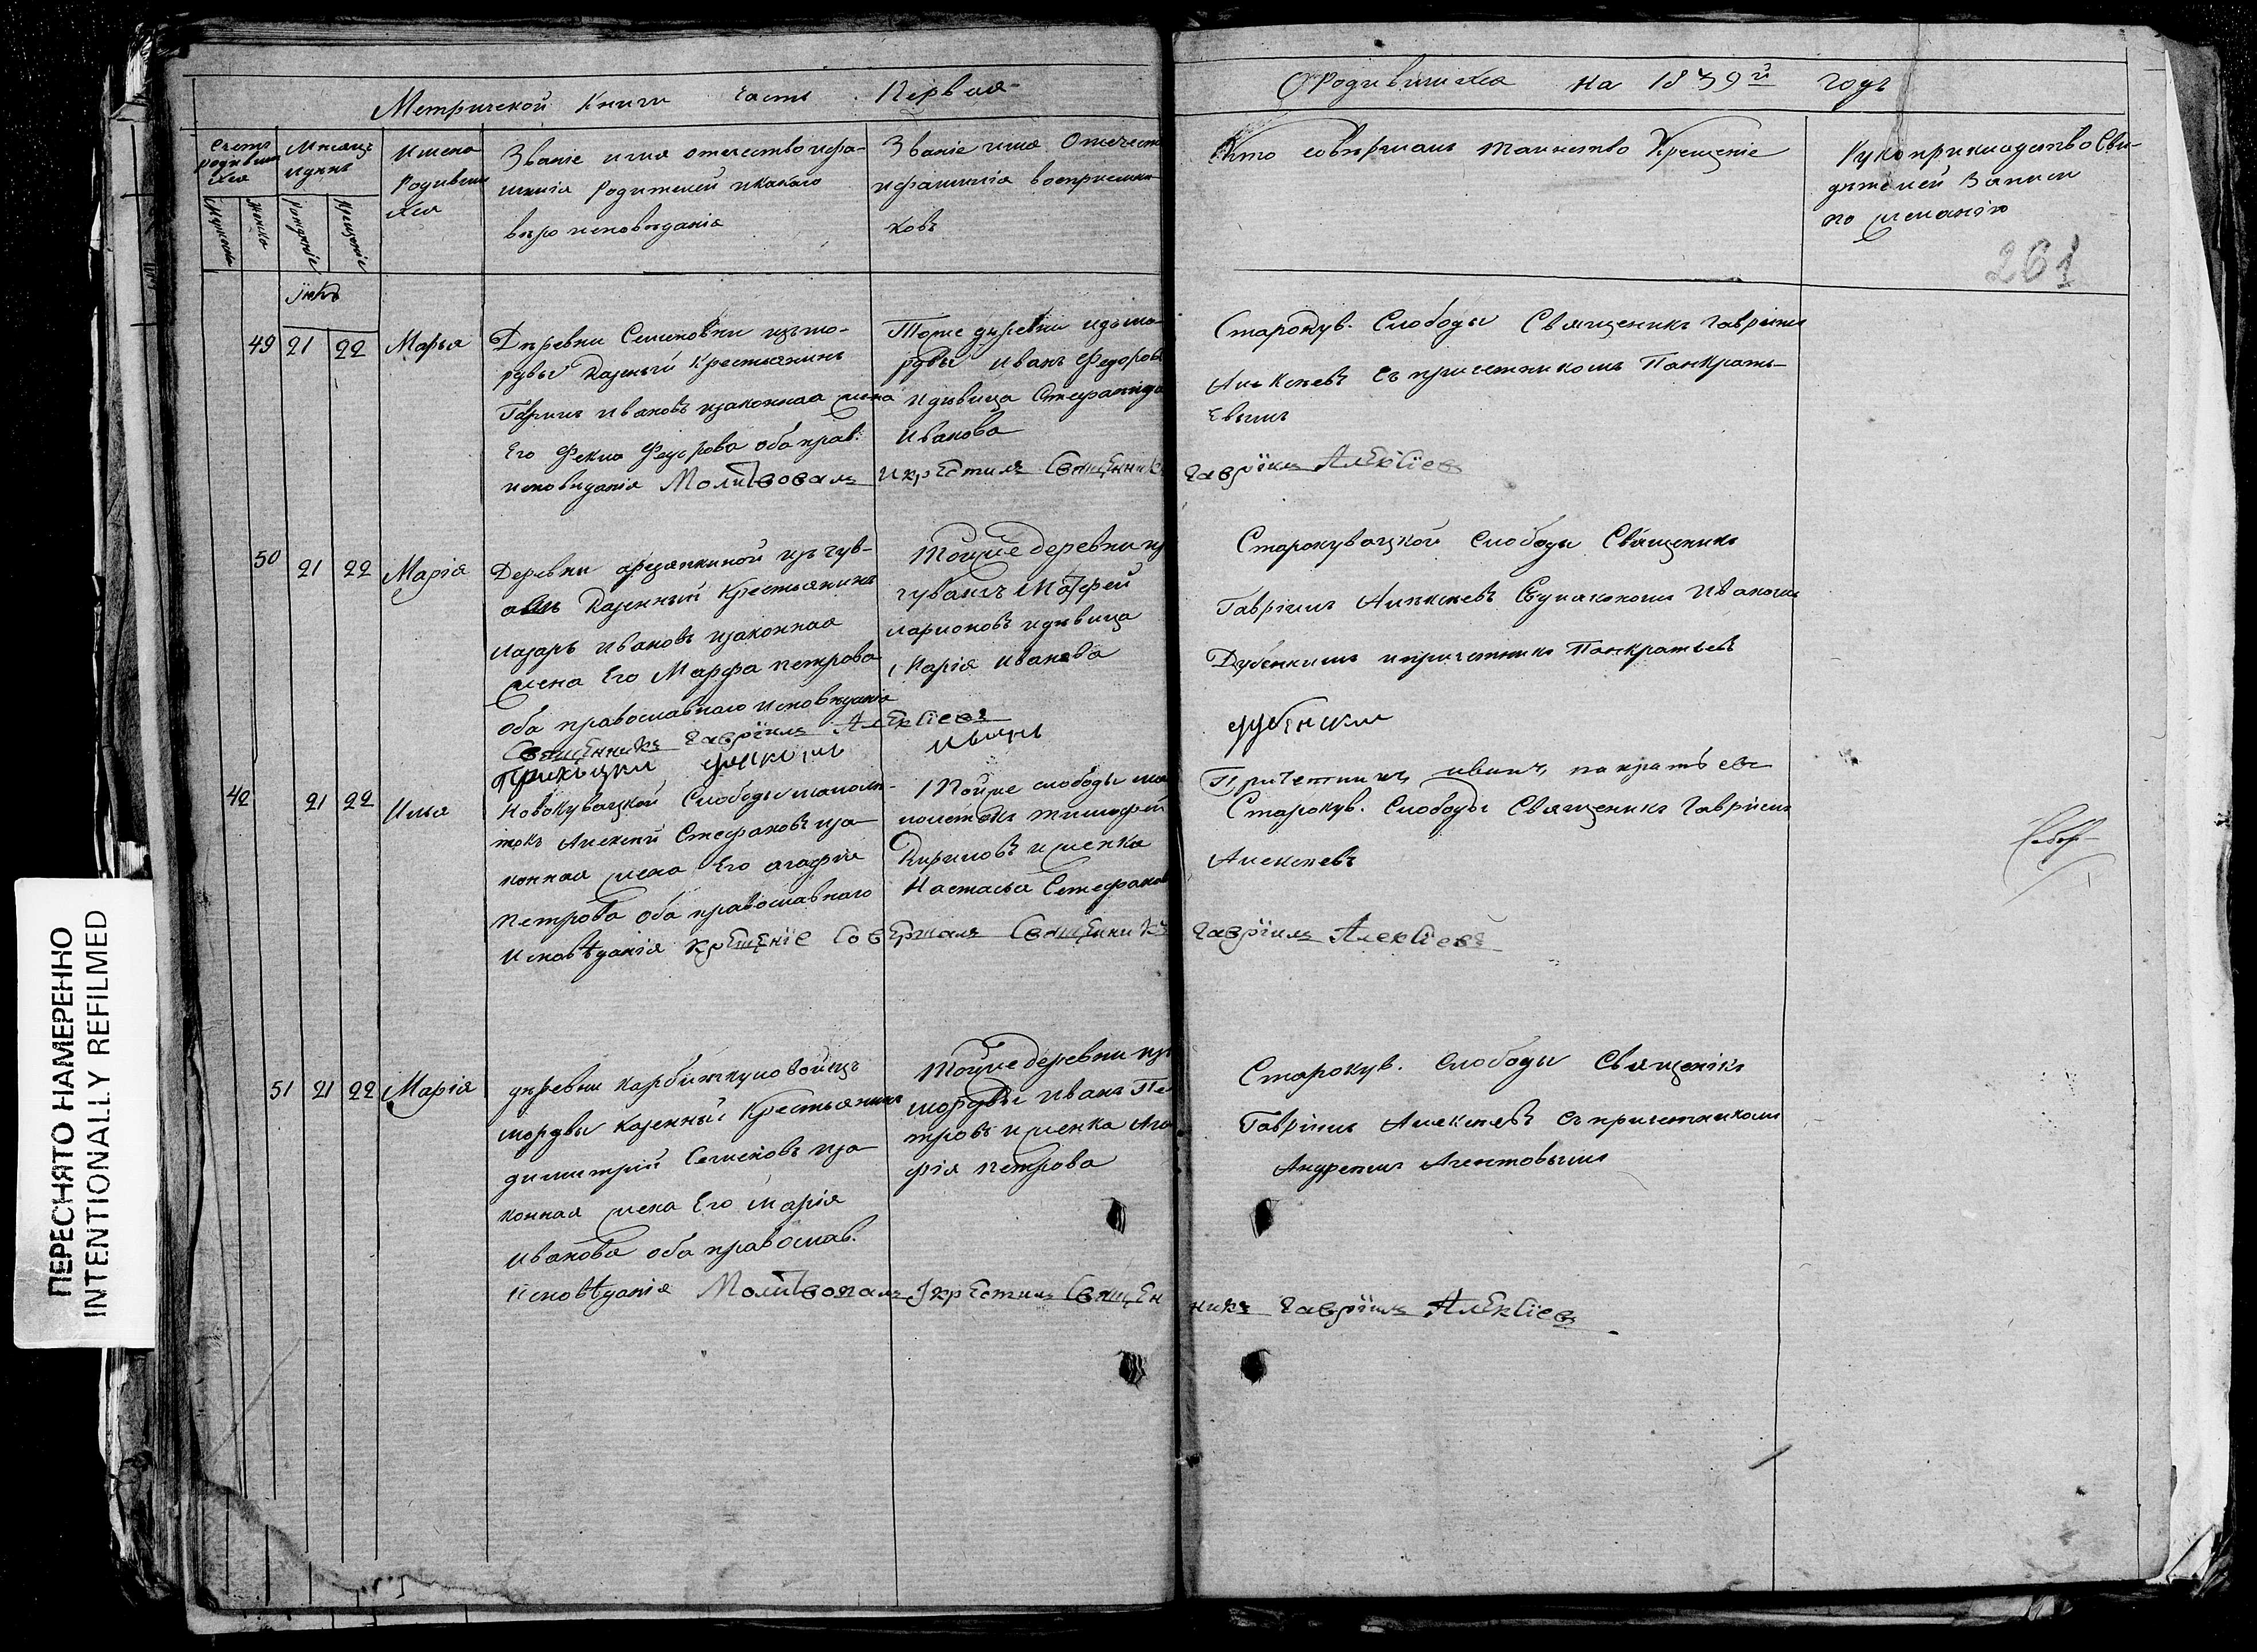 Метрической Книги часть Первая
О Родившихся на 1839й годъ
Счетъ родившихся
Мужеска
Женска
Месяцъ и день
Рождение
Крещение
Имена Родившихся
Званіе имя отечество и фа-
милія Родителей и какого
вероисповеданія
Званіе имя Отечество
и фамилія восприемни-
ковъ
Кто совершалъ таинство Крещеніе
Рукоприкладство Сви-
детелей записи
по желанію
261
49 21 22 Марья
Деревни Семеновки изъ мо-
рдвы Казеный Крестьянинъ
Ивановъ изаконная жена
Его Фекла Федорова оба прав.
исповеданія Молитвовалъ и крЕстилъ СвященникЪ
Тоже деревни изъ мо-
рдвы Иванъ Федоровъ
и девица Степанида
Иванова
Старокув. Слободы Священикъ Гавріилъ
Алексеевъ съ причетникомъ Панкрать-
Евымъ
Гавріилъ АлЕксіевъ
50 21 22 Марія
Деревни изъ чув-
ашъ Казенный Крестьянинъ
Лазарь Ивановъ изаконная
жена Его Марфа Петрова
оба православнаго исповеданія
СвященникЪ Гавріилъ АлЕксіевъ
Тойже деревни из
чувашъ Матфей
Ларионовъ и девица
Марія Иванова
Старокувацкой Слободы Священикъ
Гавріилъ Алексеевъ Иваномъ
Дубенкимъ и причетникъ Панкратьевъ
Иванъ
Причетникъ иванъ панкратьевъ
42 21 22 Илья
Новокувацкой Слободы
Алексей Стефановъ иза-
конная жена Его Агафія
Петрова оба православнаго
исповѣданія крЕщЕніе СовЕршалъ СвященникЪ
Тойже слободы
Тимофей
Кириловъ и женка
Настасья Стефанов
Старокув. Слободы Священикъ Гавріилъ
Алексеевъ
Гавріилъ АлЕксіевъ
51 21 22 Марія
деревни изъ
мордвы Казенный Крестьянинъ
димитрій Семеновъ иза-
конная жена Его Марія
Иванова оба православ.
исповѣданія Молитвовалъ І крЕстилъ Священ
Тойже деревни изъ
мордвы Иванъ Пе-
тровъ и женка Ага-
фія Петрова
Старокув. Слободы Священикъ
Гавріилъ Алексеевъ съ причетникомъ
Андреемъ
никъ Гавріилъ АлЕксіевъ
ПЕРЕСНЯТО НАМЕРЕННО
INTENTIONALLY REFILMED